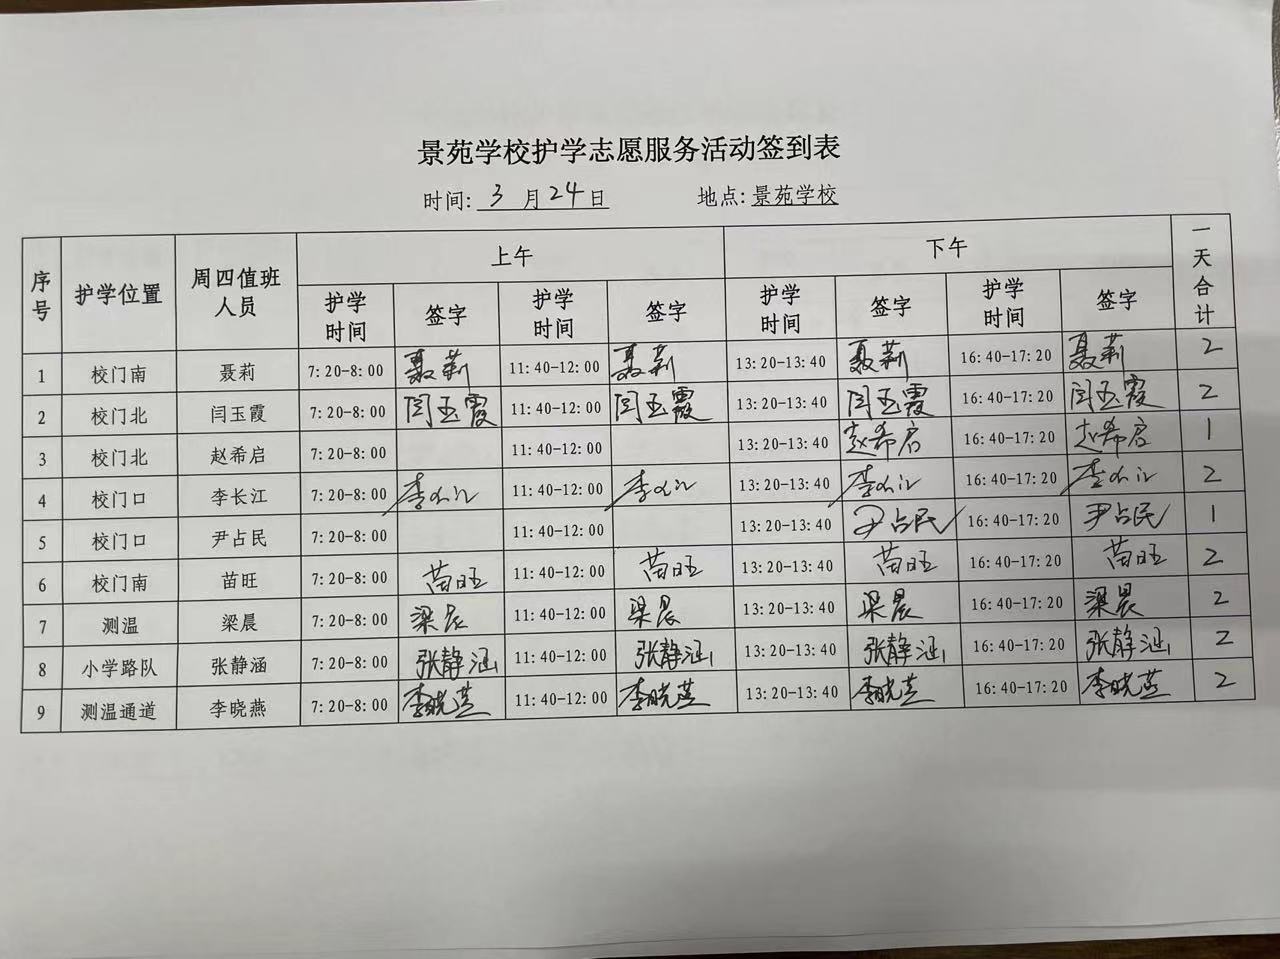 景苑学校护学志愿服务活动签到表
时间: 3 月 24 日 地点: 景苑学校
序号 护学位置 周四值班人员 上午 下午 一天合计
护学时间 签字 护学时间 签字 护学时间 签字 护学时间 签字
1 校门南 聂莉 7:20-8:00 聂莉 11:40-12:00 聂莉 13:20-13:40 聂莉 16:40-17:20 聂莉 2
2 校门北 闫玉霞 7:20-8:00 闫玉霞 11:40-12:00 闫玉霞 13:20-13:40 闫玉霞 16:40-17:20 闫玉霞 2
3 校门北 赵希启 7:20-8:00 11:40-12:00 13:20-13:40 赵希启 16:40-17:20 赵希启 1
4 校门口 李长江 7:20-8:00 李长江 11:40-12:00 李长江 13:20-13:40 李长江 16:40-17:20 李长江 2
5 校门口 尹占民 7:20-8:00 11:40-12:00 13:20-13:40 尹占民 16:40-17:20 尹占民 1
6 校门南 苗旺 7:20-8:00 苗旺 11:40-12:00 苗旺 13:20-13:40 苗旺 16:40-17:20 苗旺 2
7 测温 梁晨 7:20-8:00 梁晨 11:40-12:00 梁晨 13:20-13:40 梁晨 16:40-17:20 梁晨 2
8 小学路队 张静涵 7:20-8:00 张静涵 11:40-12:00 张静涵 13:20-13:40 张静涵 16:40-17:20 张静涵 2
9 测温通道 李晓燕 7:20-8:00 李晓燕 11:40-12:00 李晓燕 13:20-13:40 李晓燕 16:40-17:20 李晓燕 2